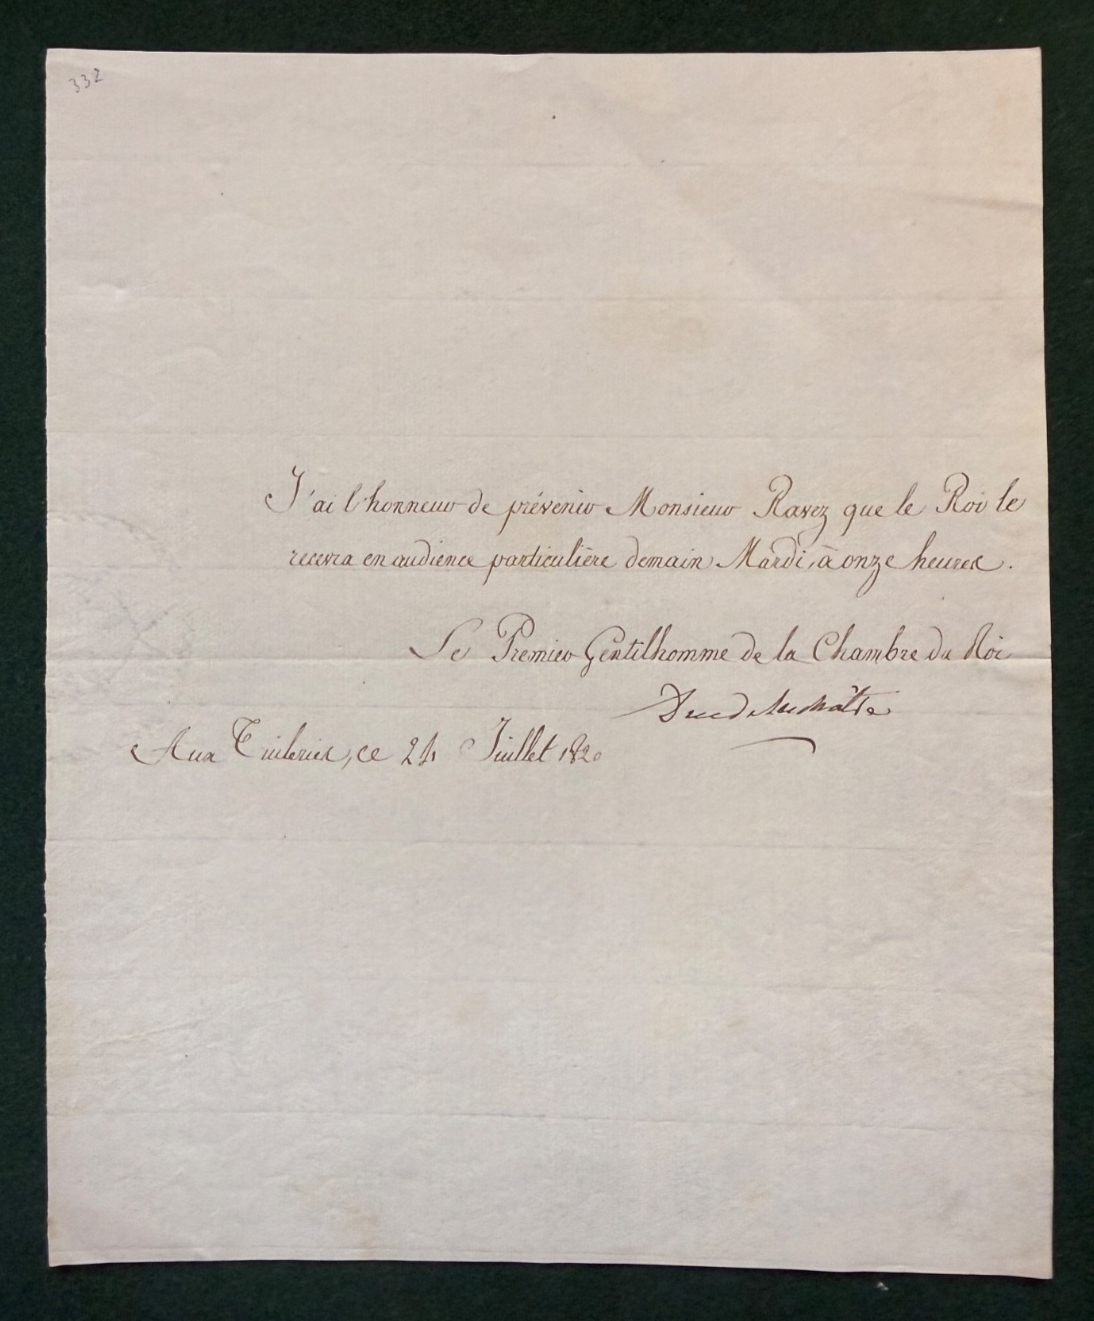 332
J'ai l'honneur de prévenir Monsieur Ravez que le Roi le
recevra en audience particulière demain Mardi, à onze heures.
Le Premier Gentilhomme de la Chambre du Roi
Duc de la Châtre
Aux Tuileries, ce 24 Juillet 1820